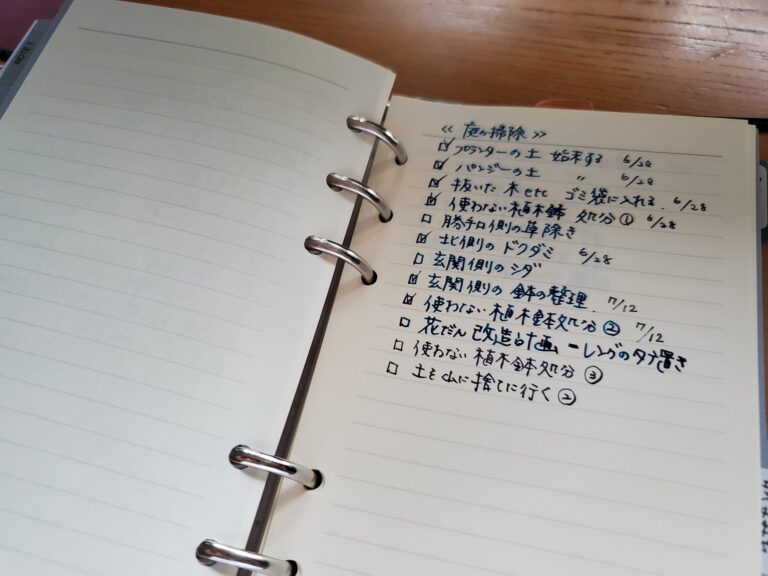 NOTE 1
《 庭の掃除 》
☑ プランターの土 始末する 6/28
☑ パンジーの土 〃 6/28
☑ 抜いた木etc ゴミ袋に入れる. 6/28
☑ 使わない植木鉢 処分① 6/28
□ 勝手口側の草除き
☑ 北側のドクダミ 6/28
□ 玄関側のシダ
☑ 玄関側の鉢の整理. 7/12
☑ 使わない植木鉢処分② 7/12
□ 花だん改造計画 ーレンガのタナ置き
□ 使わない植木鉢処分③
□ 土を山に捨てに行く②